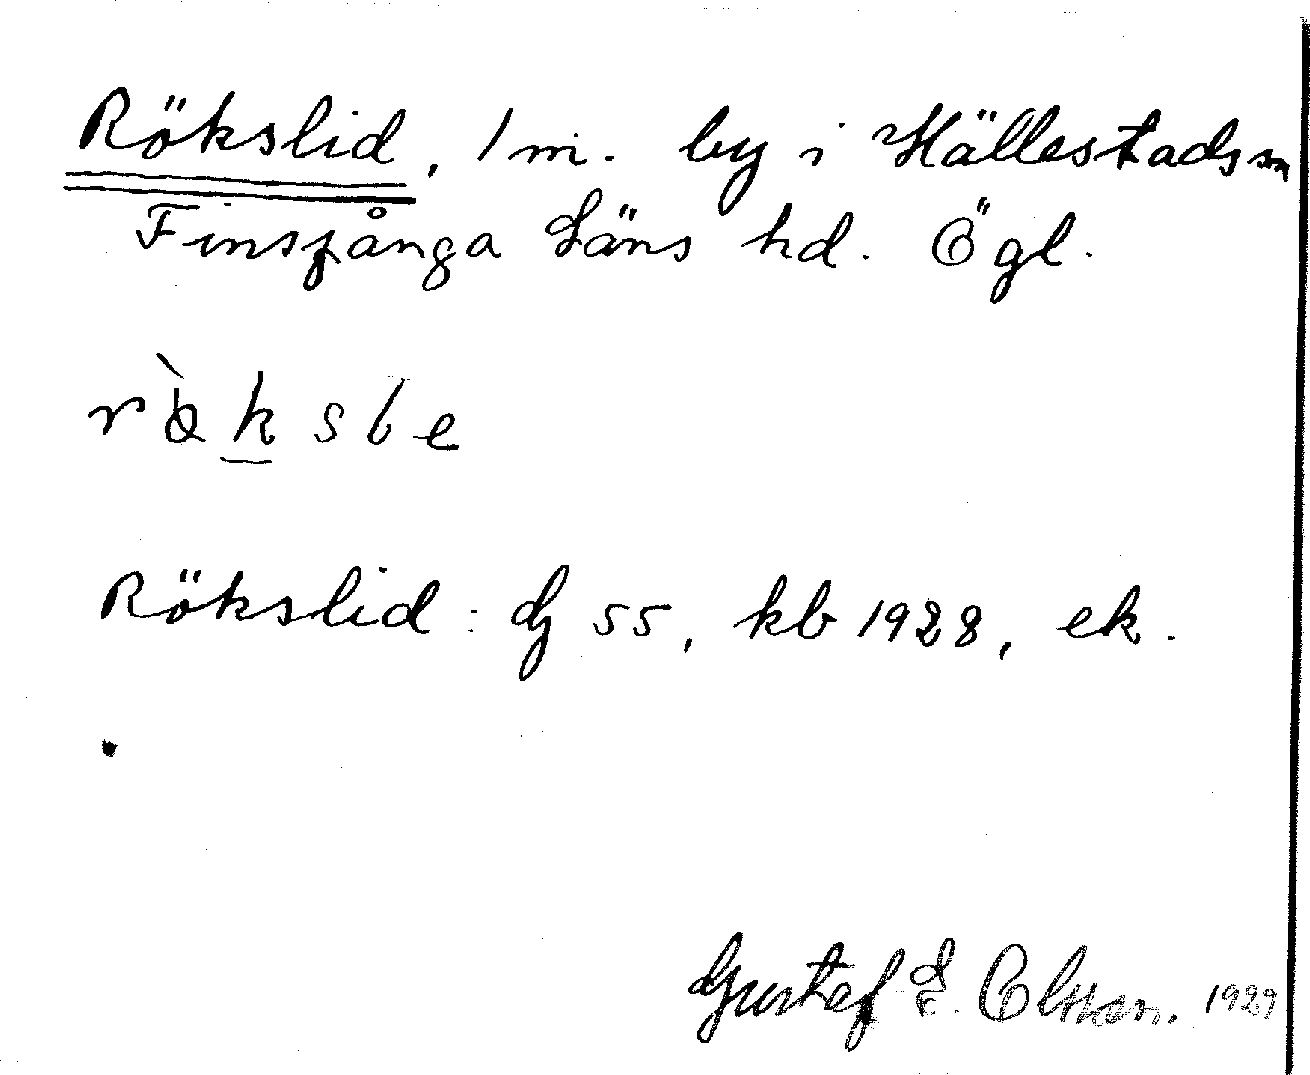 Rökslid, 1 m. by i Hällestad sn
Finspånga Läns hd. Ögl.
Rökslid: dj 55, kb 1928, ek.
Gustaf E. Olsson. 1929